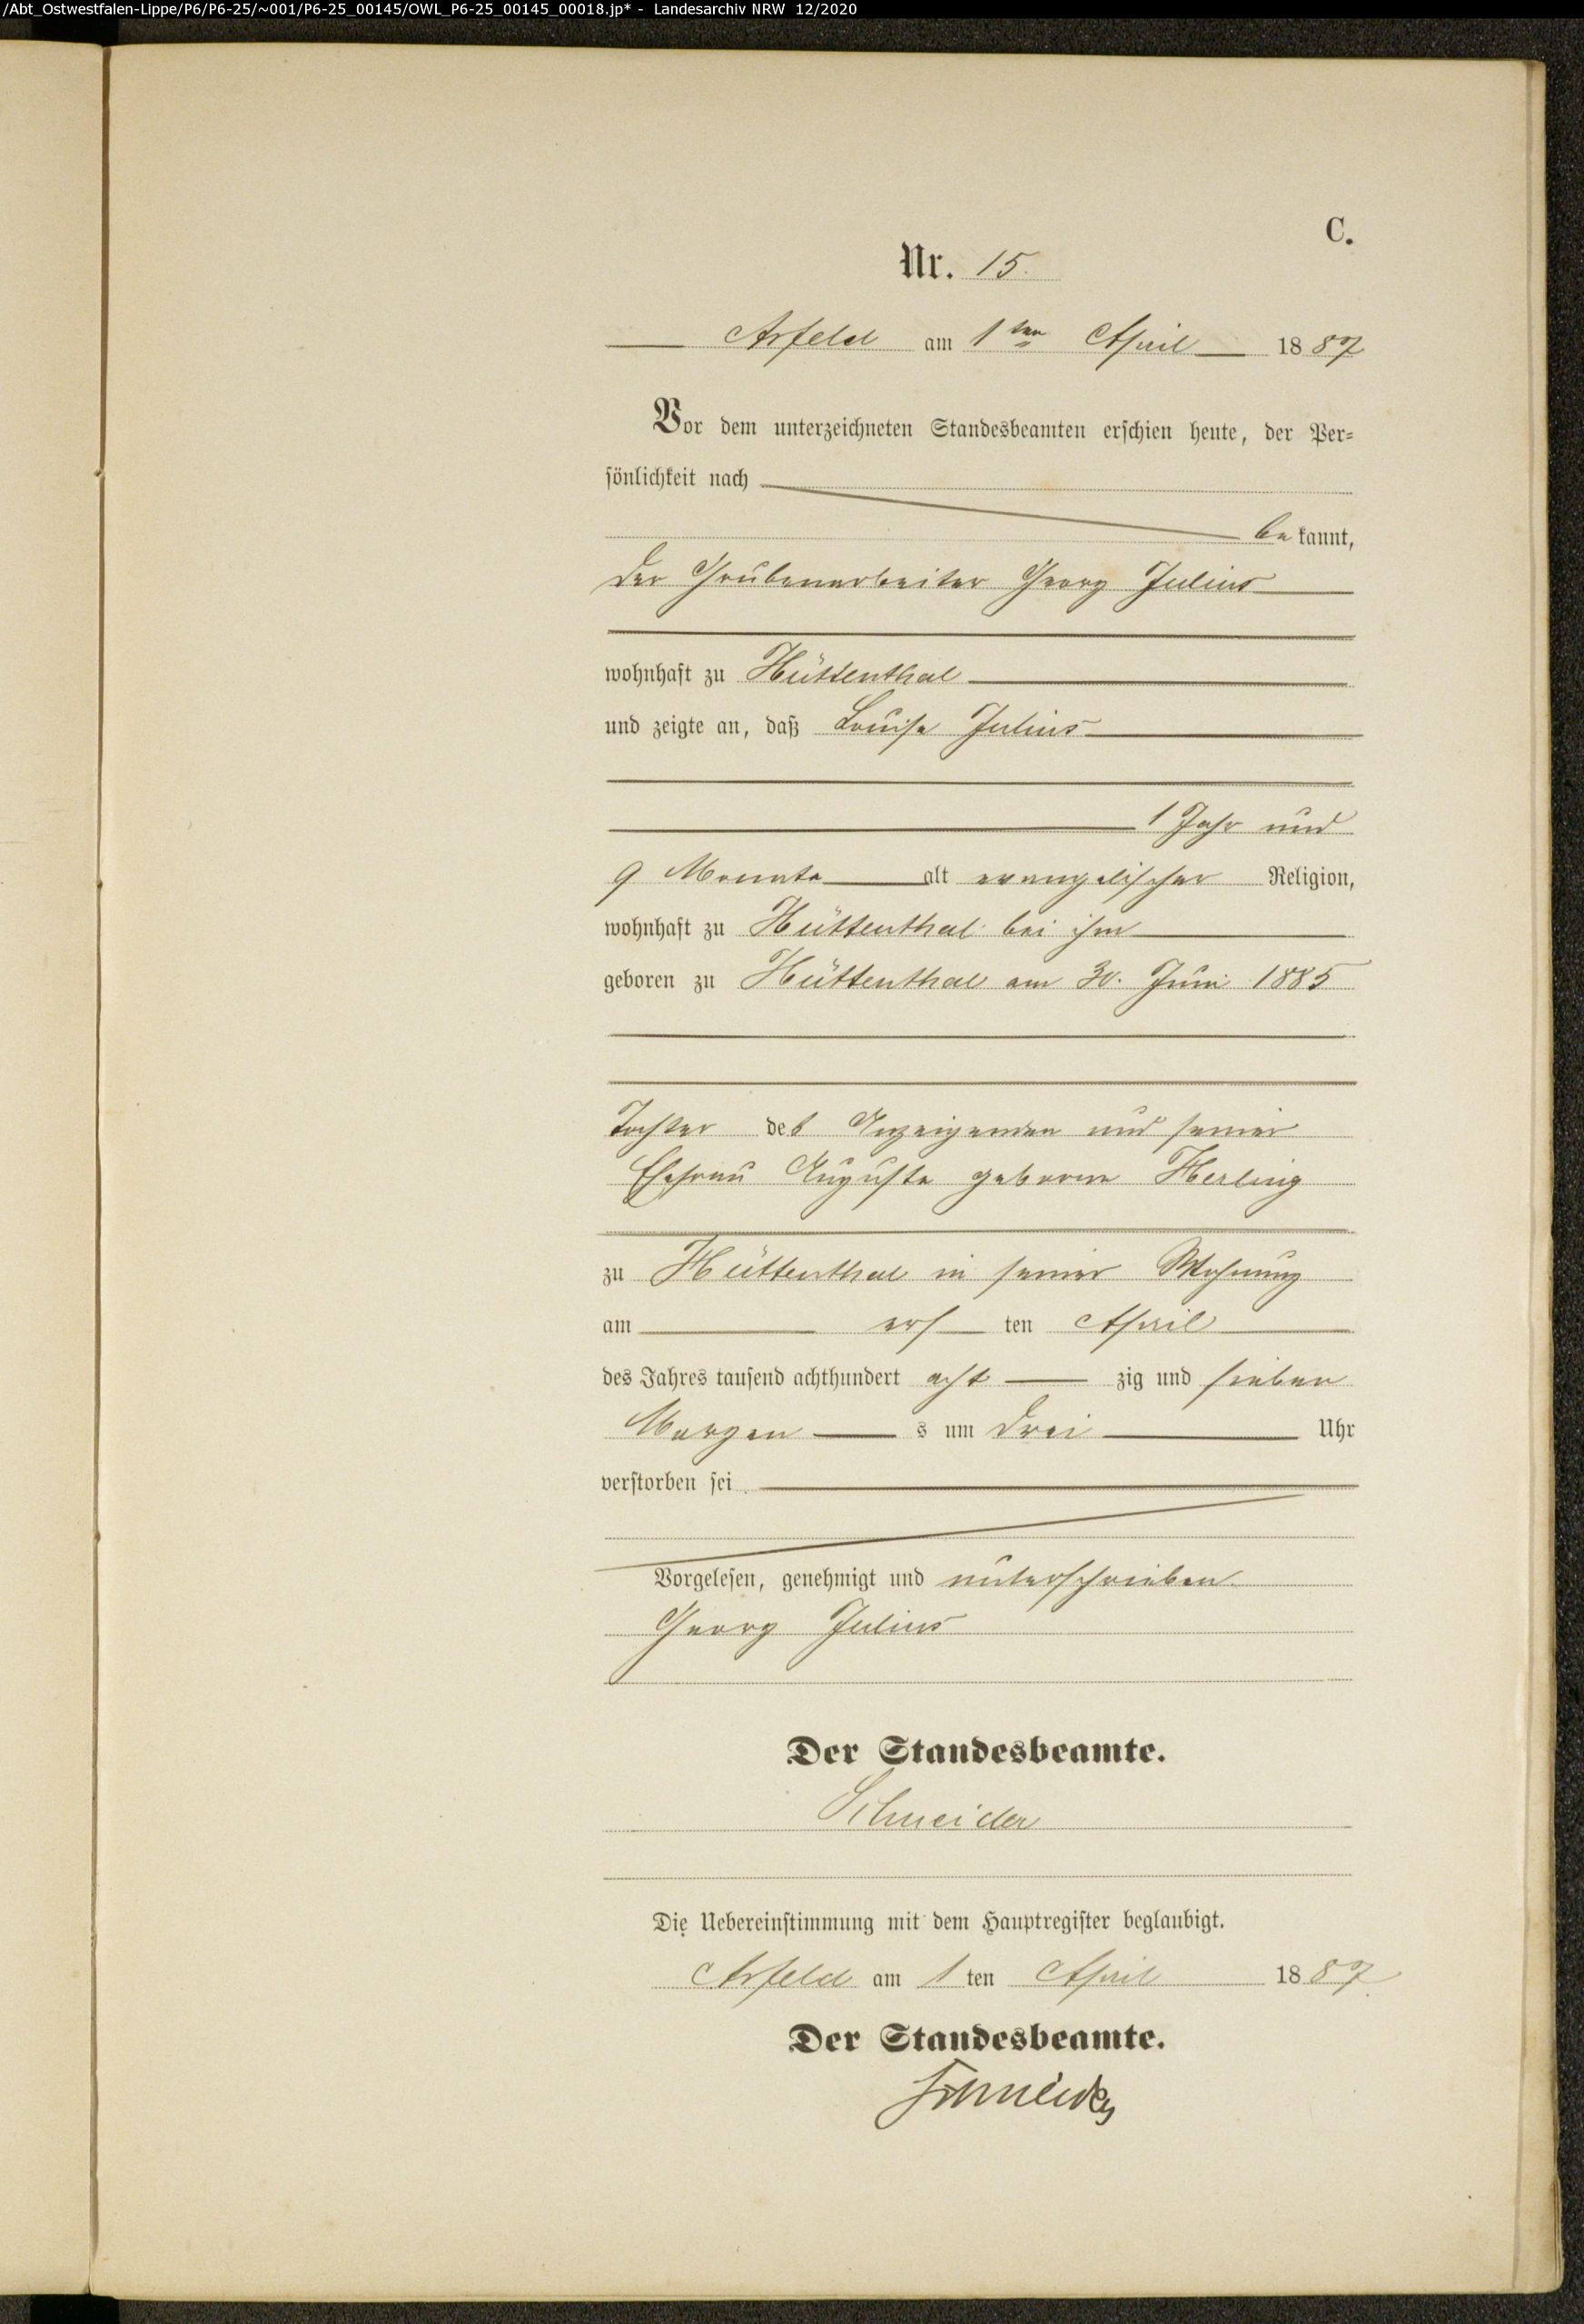 /Abt_Ostwestfalen-Lippe/P6/P6-25/~001/P6-25_00145/OWL_P6-25_00145_00018.jp* - Landesarchiv NRW 12/2020
C.
Nr. 15.
Arfeld am 1ten April 1887
Vor dem unterzeichneten Standesbeamten erschien heute, der Per-
sönlichkeit nach
bekannt,
der Grubenarbeiter Georg Julius
wohnhaft zu Hüttenthal
und zeigte an, daß Louise Julius
1 Jahr und
9 Monate alt evangelischer Religion,
wohnhaft zu Hüttenthal bei ihm
geboren zu Hüttenthal am 30. Juni 1885
Tochter des Anzeigenden und seiner
Ehefrau Auguste geborne Herling
zu Hüttenthal in seiner Wohnung
am ersten April
des Jahres tausend achthundert achtzig und sieben
Morgens um drei Uhr
verstorben sei
Vorgelesen, genehmigt und unterschrieben
Georg Julius
Der Standesbeamte.
Schneider
Die Uebereinstimmung mit dem Hauptregister beglaubigt.
Arfeld am 1ten April 1887
Der Standesbeamte.
Schneider